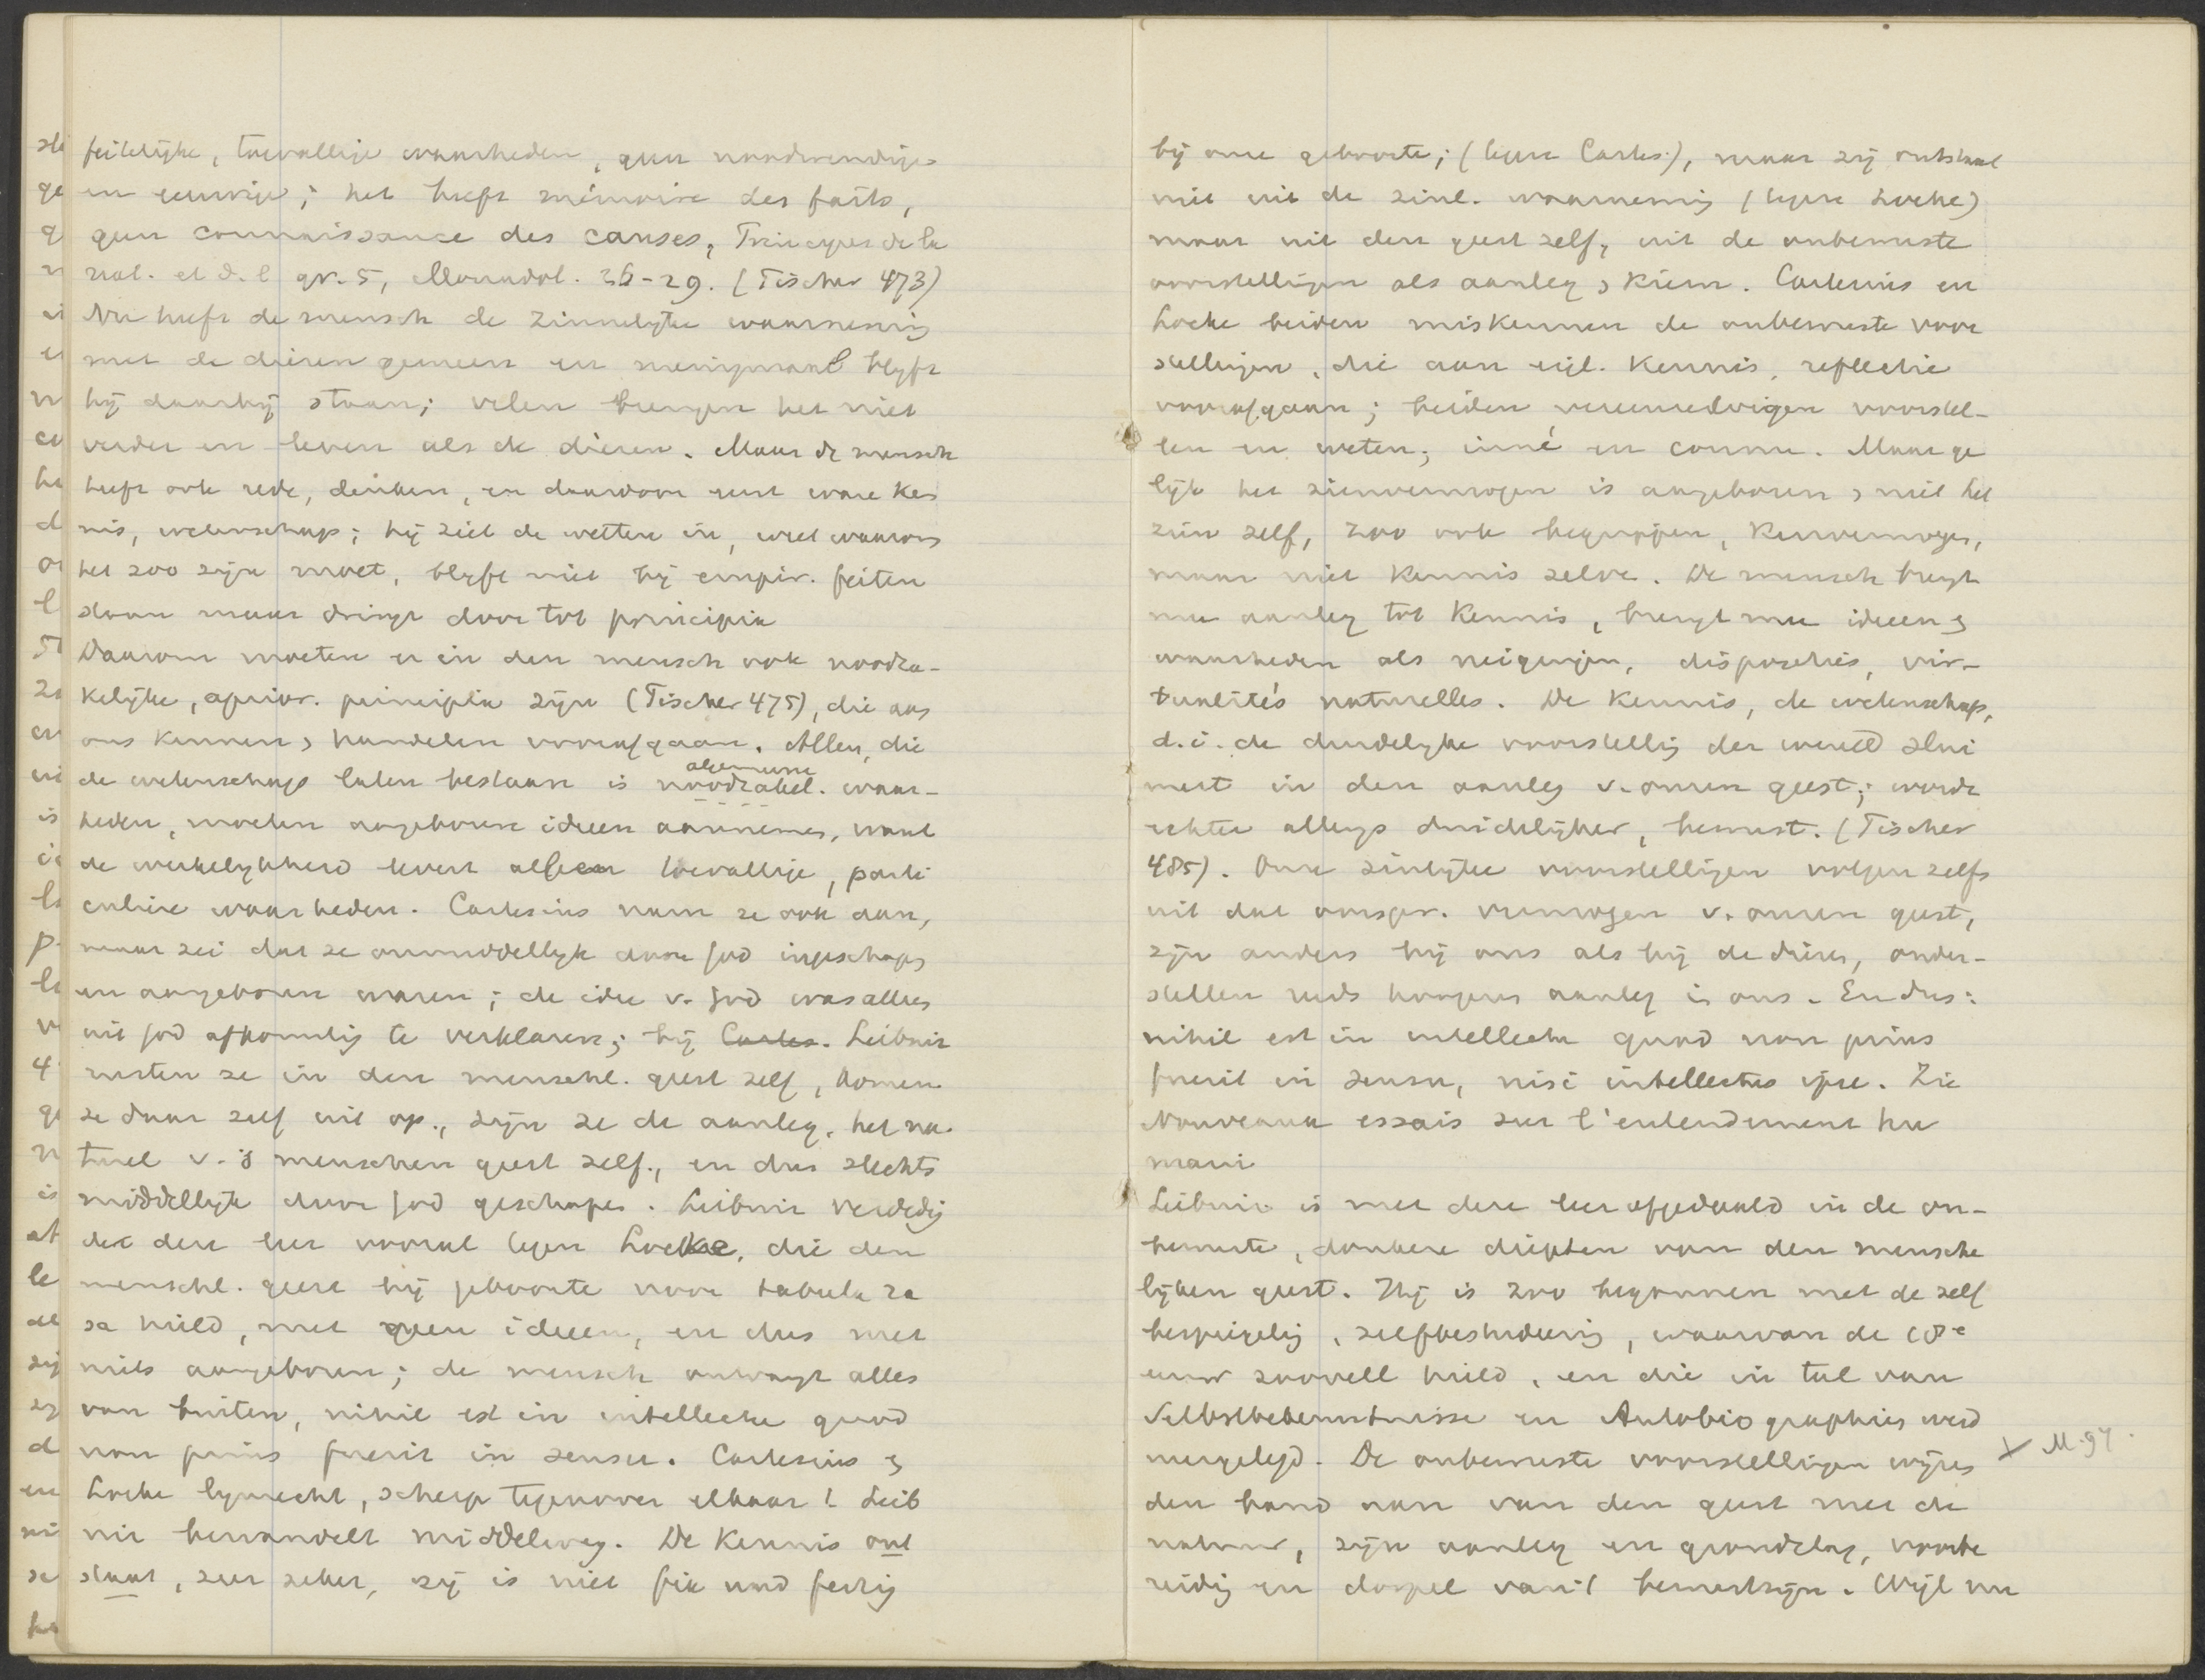 feitelijke, toevallige waarheden, geen noodwendige
en eeuwige; het heeft mémoire des faits,
geen connaissance des causes, Principes de la
nat. et d. l gr. 5, Monadol. 26-29. (Fischer 473)
Nu heeft de mensch de zinnelijke waarneming
met de dieren gemeen en menigmaal blijft
hij daarbij staan; velen brengen het niet
verder en leven als de dieren. Maar de mensch
heeft ook rede, denken, en daardoor eerst ware ken
nis, wetenschap; hij ziet de wetten in, weet waarom
het zoo zijn moet, blijft niet bij empir. feiten
staan maar dringt door tot principia
Daarom moeten er in den mensch ook noodza-
kelijke, aprior. principia zijn (Fischer 475), die aan
ons kennen & handelen voorafgaan. Allen, die
de wetenschap laten bestaan is noodzakel. algemeene waar-
heden, moeten aangeboren ideeen aannemen, want
de werkelijkheid levert alleen toevallige, parti
culiere waarheden. Cartesius nam ze ook aan,
maar zei dat ze onmiddellijk door God ingeschapen
en aangeboren waren; de idee v. God was alleen
uit God afkomstig te verklaren; bij Cartes. Leibniz
rusten ze in den menschl. geest zelf, komen
ze daar zelf uit op, zijn ze de aanleg, het na-
tuel v. 's menschen geest zelf, en dus slechts
middellijk door God geschapen. Leibniz verdedig
de deze leer vooral tegen Locke, die den
menschl. geest bij geboorte voor tabula ra
sa hield, met geen ideeen, en dus met
niets aangeboren; de mensch ontvangt alles
van buiten, nihil est in intellectu quod
non prius fuerit in sensu. Cartesius &
Locke lijnrecht, scherp tegenover elkaar! Leib
niz bewandelt middelweg. De kennis ont
staat, zeer zeker, zij is niet fix und fertig
bij onze geboorte; (tegen Cartes.), maar zij ontstaat
niet uit de zinl. waarneming (tegen Locke)
maar uit den geest zelf, uit de onbewuste
voorstellingen als aanleg & kiem. Cartesius en
Locke beiden miskennen de onbewuste voor
stellingen, die aan eigl. kennis, reflectie
voorafgaan; beiden vereenzelvigen voorstel-
len en weten, inné en connu. Maar ge
lijk het zienvermogen is aangeboren & niet het
zien zelf, zoo ook begrippen, kenvermogen,
maar niet kennis zelve. De mensch brengt
mee aanleg tot kennis, brengt mee ideeen &
waarheden als neigingen, disposities, vir-
tualités naturelles. De kennis, de wetenschap,
d.i. de duidelijke voorstelling der wereld slui
mert in den aanleg v. onzen geest; wordt
echter allengs duidelijker, bewust. (Fischer
485). Onze zinlijke voorstellingen volgen zelfs
uit dat oorspr. vermogen v. onzen geest,
zijn anders bij ons als bij de dieren, onder-
stellen reeds hoogeren aanleg in ons. En dus:
nihil est in intellectu quod non prius
fuerit in sensu, nisi intellectus ipse. Zie
Nouveaux essais sur l'entendement hu
main
Leibniz is met deze leer afgedaald in de on-
bewuste, donkere diepten van den mensche
lijken geest. Hij is zoo begonnen met de zelf
bespiegeling, zelfbestudeering, waarvan de 18e
eeuw zooveel hield, en die in tal van
Selbstbekenntnisse en Autobiographies werd
neergelegd. De onbewuste voorstellingen wijzen
X M. 97.
den band aan van den geest met de
natuur, zijn aanleg en grondslag, voorbe
reiding en dorpel van 't bewustzijn. Wijl nu